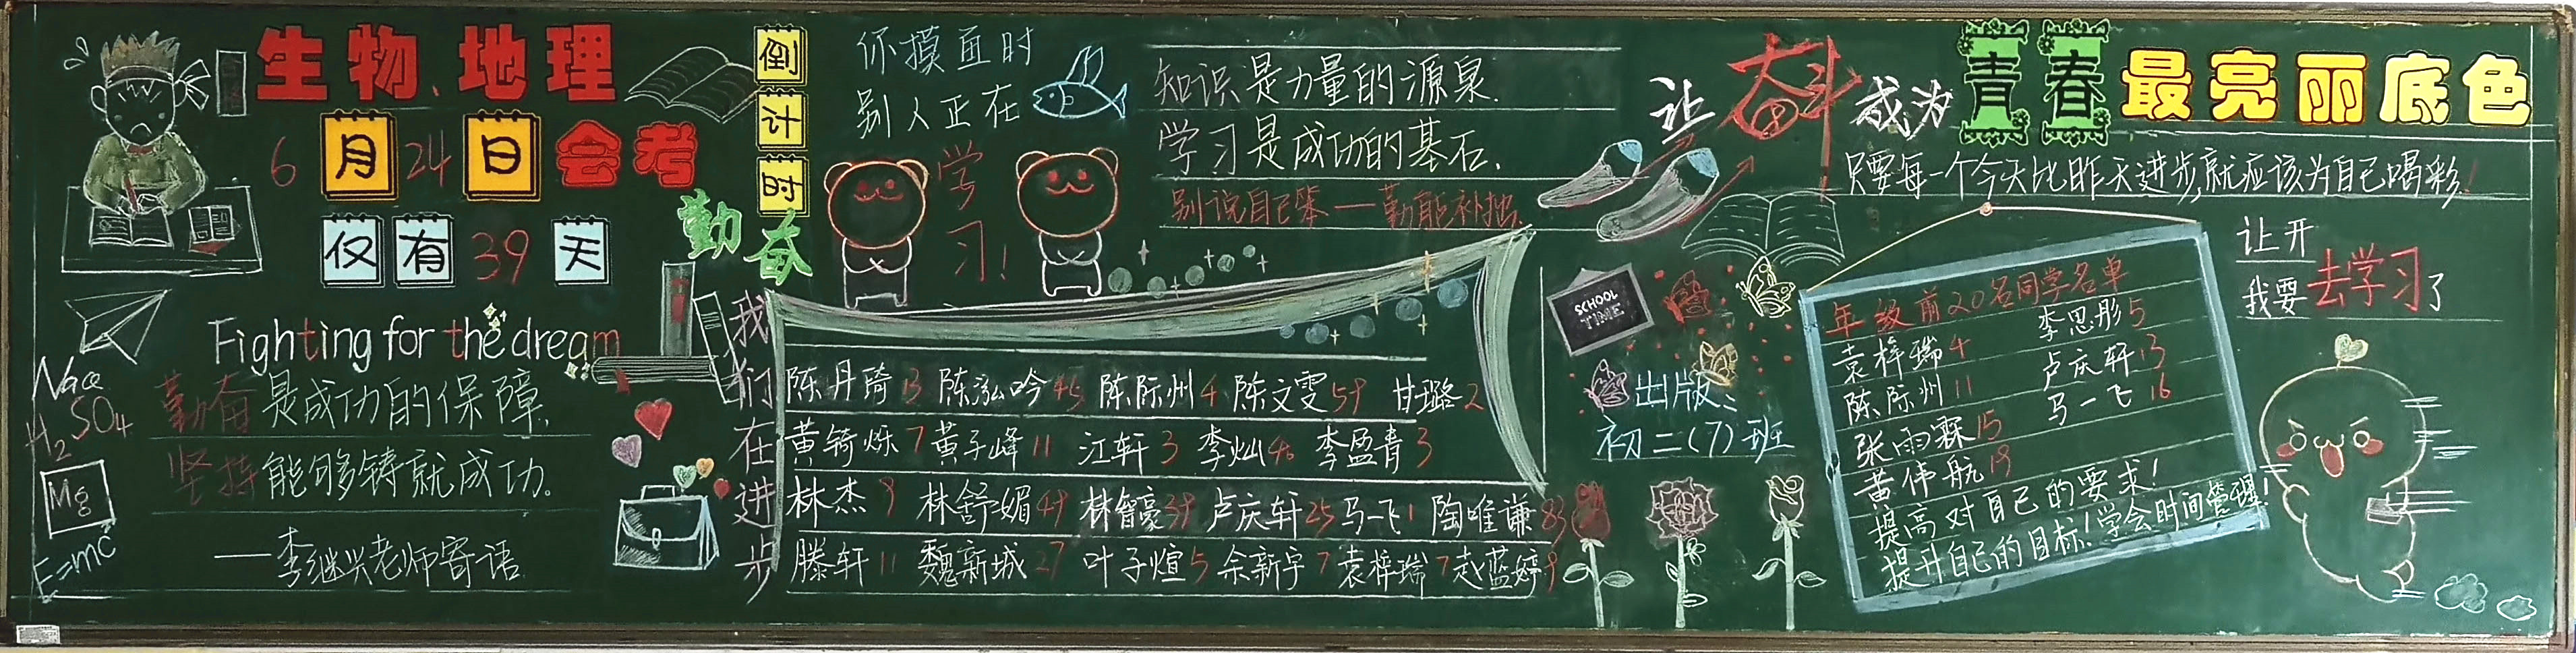 生物、地理
6月24日会考
倒计时
仅有39天
勤奋
Fighting for the dream
勤奋是成功的保障,
坚持能够铸就成功。
——李继兴老师寄语
Nace
H2SO4
Mg
E=mc²
你摸鱼时
别人正在
学习!
知识是力量的源泉.
学习是成功的基石.
别说自己笨——勤能补拙.
我们在进步
陈丹琦13 陈泓吟45 陈际州4 陈文雯59 甘璐2
黄锜烁7 黄子峰11 江轩3 李灿40 李盈青3
林杰9 林舒媚49 林智豪39 卢庆轩25 马一飞1 陶唯谦83
滕轩11 魏新城27 叶子煊5 余新宇7 袁梓瑞7 赵蓝婷9
让奋斗成为青春最亮丽底色
只要每一个今天比昨天进步,就应该为自己喝彩!
SCHOOL
TIME
出版:
初二(7)班
年级前20名同学名单
袁梓瑞4 李思彤5
陈际州11 卢庆轩13
张雨霖15 马一飞16
黄伟航19
提高对自己的要求!
提升自己的目标!学会时间管理!
让开
我要去学习了